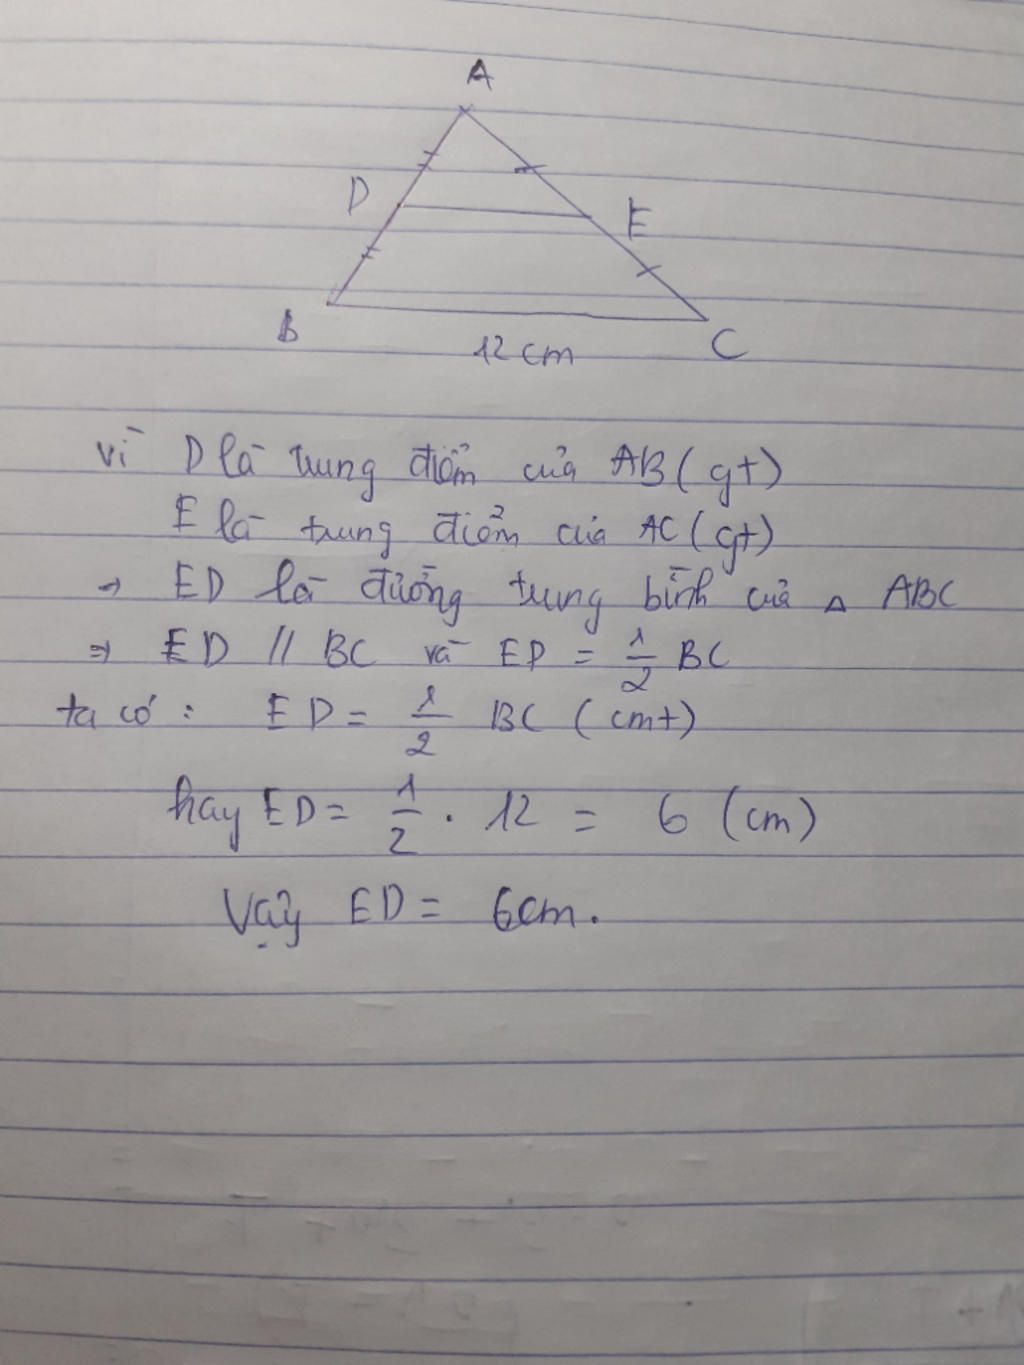 A
D
E
B
C
12 cm
Vì D là trung điểm của AB (gt)
E là trung điểm của AC (gt)
→ ED là đường trung bình của △ ABC
⇒ ED // BC và ED = 1/2 BC
ta có : ED = 1/2 BC (cmt)
hay ED = 1/2 . 12 = 6 (cm)
Vậy ED = 6cm.